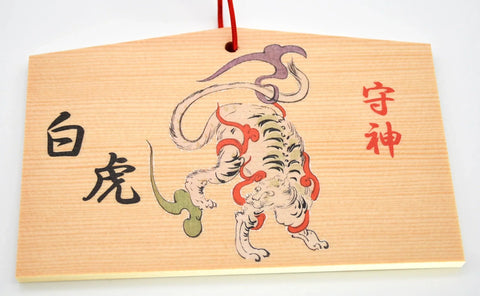 守神
白虎